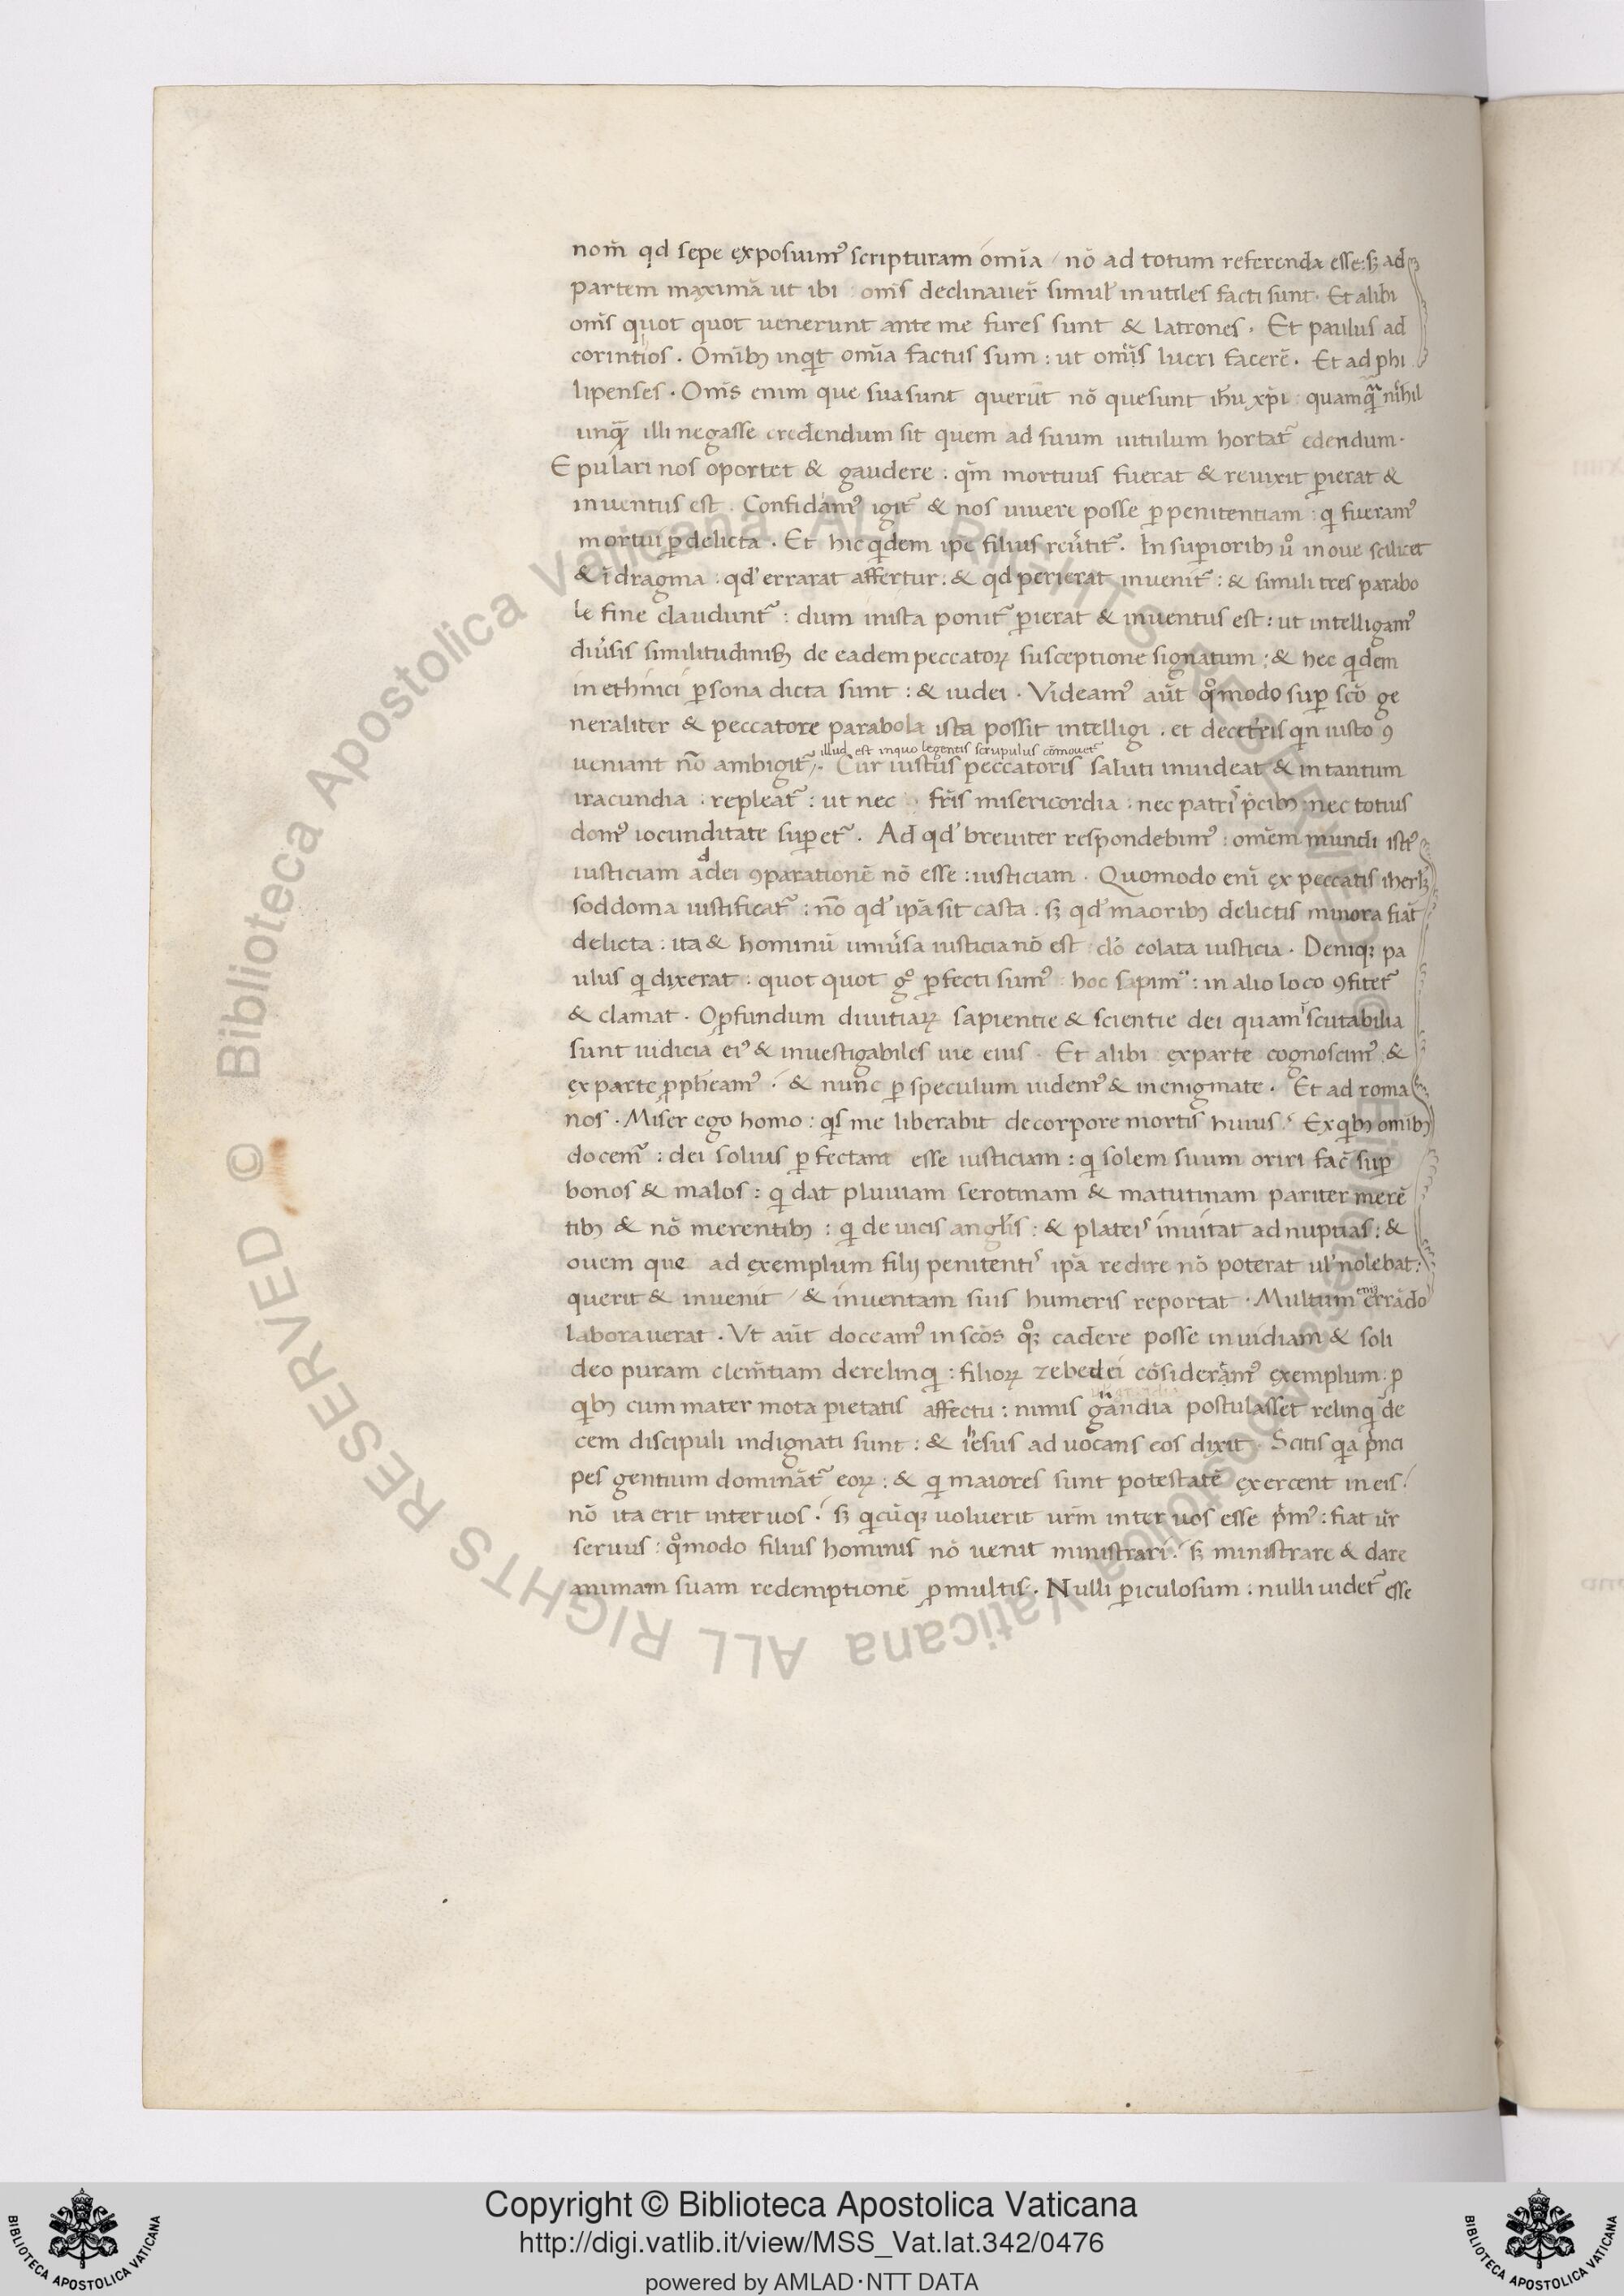 nom̄ qd sepe exposuim᾽ scripturam om̄ia / nō ad totum referenda esse: sꝫ ad
partem maximā ut ibi : om̄s declinauer̄ simul inutiles facti sunt. Et alibi
om̄s quot quot uenerunt ante me fures sunt & latrones. Et paulus ad
corintios. Om̄ibꝫ inqt om̄ia factus sum: ut om̄is lucri facerē. Et ad phi
lipenses. Om̄s enim que sua sunt querūt nō que sunt ihu xp̄i : nihil
unqꝫ illi negasse credendum sit quem ad suum uitulum hortat᾽ edendum.
Epulari nos oportet & gaudere: qm̄ mortuus fuerat & reuixit ꝑierat &
inuentus est. Confidam᾽ igit᾽ & nos uiuere posse ꝑ penitentiam: q fueram᾽
mortui ꝑ delicta. Et hic qdem ip̄e filius reūtit᾽. In suꝑioribꝫ ūo in oue scilicet
& ī dragma: qd᾽ errarat affertur: & qd perierat inuenit᾽: & simili tres parabo
le fine claudunt᾽: dum in ista ponit᾽ ꝑierat & inuentus est: ut intelligam᾽
diūsis similitudinibꝫ de eadem peccatoꝝ susceptione signatum: & hec qdem
in ethnici ꝑsona dicta sunt: & iudei. Videam᾽ aūt qōmodo suꝑ scō ge
neraliter & peccatore parabola ista possit intelligi. et de cet̄ris qn iusto ꝯ
ueniant nō ambigit᾽.
illud est in quo legentis scrupulus cōmouet᾽
Cur iustus peccatoris saluti inuideat & in tantum
iracundia : repleat᾽: ut nec fr̄is misericordia : nec patri᾽ p̄cibꝫ: nec totius
dom᾽ iocunditate suꝑet᾽. Ad qd᾽ breuiter respondebim᾽: omēm mundi isti᾽
iusticiam ad dei ꝯparationē nō esse: iusticiam. Quomodo enī ex peccatis
soddoma iustificat᾽: nō qd᾽ ip̄a sit casta. sꝫ qd᾽ maoribꝫ delictis minora fiāt
delicta: ita & hominū uniūsa iusticia nō est dō colata iusticia. Deniqꝫ pa
ulus q dixerat. quot quot gͦ ꝑfecti sum᾽ hoc sapim᾽: in alio loco ꝯfitet᾽
& clamat. O ꝓfundum diuitiaꝝ sapientie & scientie dei quam īscutabilia
sunt iudicia ei᾽ & inuestigabiles uie eius. Et alibi : ex parte cognoscim᾽ : &
ex parte ꝓph̄eam᾽. & nunc ꝑ speculum uidem᾽ & in enigmate. Et ad roma
nos. Miser ego homo: qs me liberabit de corpore mortis huius. Ex qbꝫ om̄ibꝫ
docem᾽: dei solius ꝑfectam esse iusticiam: q solem suum oriri fac̄ suꝑ
bonos & malos: q dat pluuiam serotinam & matutinam pariter merē
tibꝫ & nō merentibꝫ: q de uicis angl̄is: & plateis inuitat ad nuptias: &
ouem que ad exemplum filij penitenti᾽ ip̄a redire nō poterat ul᾽ nolebat:
querit & inuenit / & inuentam suis humeris reportat. Multum eni᾽ errādo
laborauerat. Vt aūt doceam᾽ in scōs qōꝫ cadere posse inuidiam & soli
deo puram clem̄tiam derelinq: filioꝝ zebedei cōsideram᾽ exemplum: ꝓ
qbꝫ cum mater mota pietatis affectu: nimis grandia postulasset relinq de
cem discipuli indignati sunt: & ihesus ad uocans eos dixit. Scitis qa pnci
pes gentium domināt᾽ eoꝝ: & q maiores sunt potestatē exercent in eis.
nō ita erit inter uos. sꝫ qcūqꝫ uoluerit ur̄m inter uos esse pm᾽: fiat ur̄
seruus: qōmodo filius hominis nō uenit ministrari. sꝫ ministrare & dare
animam suam redemptionē ꝓ multis. Nulli ꝑiculosum: nulli uidet᾽ esse
© Biblioteca Apostolica Vaticana ALL RIGHTS RESERVED © Biblioteca Apostolica Vaticana ALL RIGHTS RESERVED
Copyright © Biblioteca Apostolica Vaticana
http://digi.vatlib.it/view/MSS_Vat.lat.342/0476
powered by AMLAD·NTT DATA
BIBLIOTECA APOSTOLICA VATICANA
BIBLIOTECA APOSTOLICA VATICANA